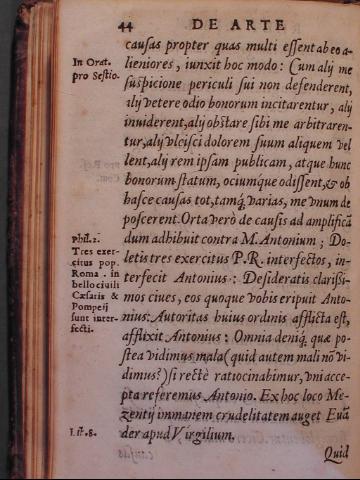 44 DE ARTE
causas propter quas multi essent ab eo a-
lieniores, iunxit hoc modo: Cum alij me
suspicione periculi sui non defenderent,
alij vetere odio bonorum incitarentur, alij
inuiderent, alij obstare sibi me arbitraren-
tur, alij vlcisci dolorem suum aliquem vel
lent, alij rem ipsam publicam, atque hunc
bonorum statum, ociumque odissent, & ob
hasce causas tot, tamq́; varias, me vnum de
poscerent. Orta verò de causis ad amplificā
dum adhibuit contra M. Antonium; Do-
letis tres exercitus P. R. interfectos, in-
terfecit Antonius: Desideratis clarissi-
mos ciues, eos quoque vobis eripuit Anto-
nius: Autoritas huius ordinis afflicta est,
afflixit Antonius: Omnia deniq́; quæ po-
stea vidimus mala (quid autem mali nō vi-
dimus?) si rectè ratiocinabimur, vni acce-
pta referemus Antonio. Ex hoc loco Me-
zentij immanem crudelitatem auget Euā
der apud Virgilium.
Quid
In Orat.
pro Sestio.
Phil. 2.
Tres exer-
citus pop.
Roma. in
bello ciuili
Cæsaris &
Pompeij
sunt inter-
fecti.
Lib. 8.